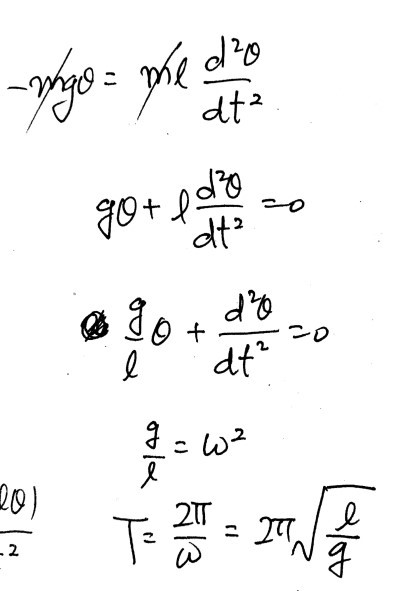 -mgθ = ml d²θ/dt²
gθ + l d²θ/dt² = 0
g/l θ + d²θ/dt² = 0
g/l = ω²
lθ)
2
T = 2π/ω = 2π√(l/g)